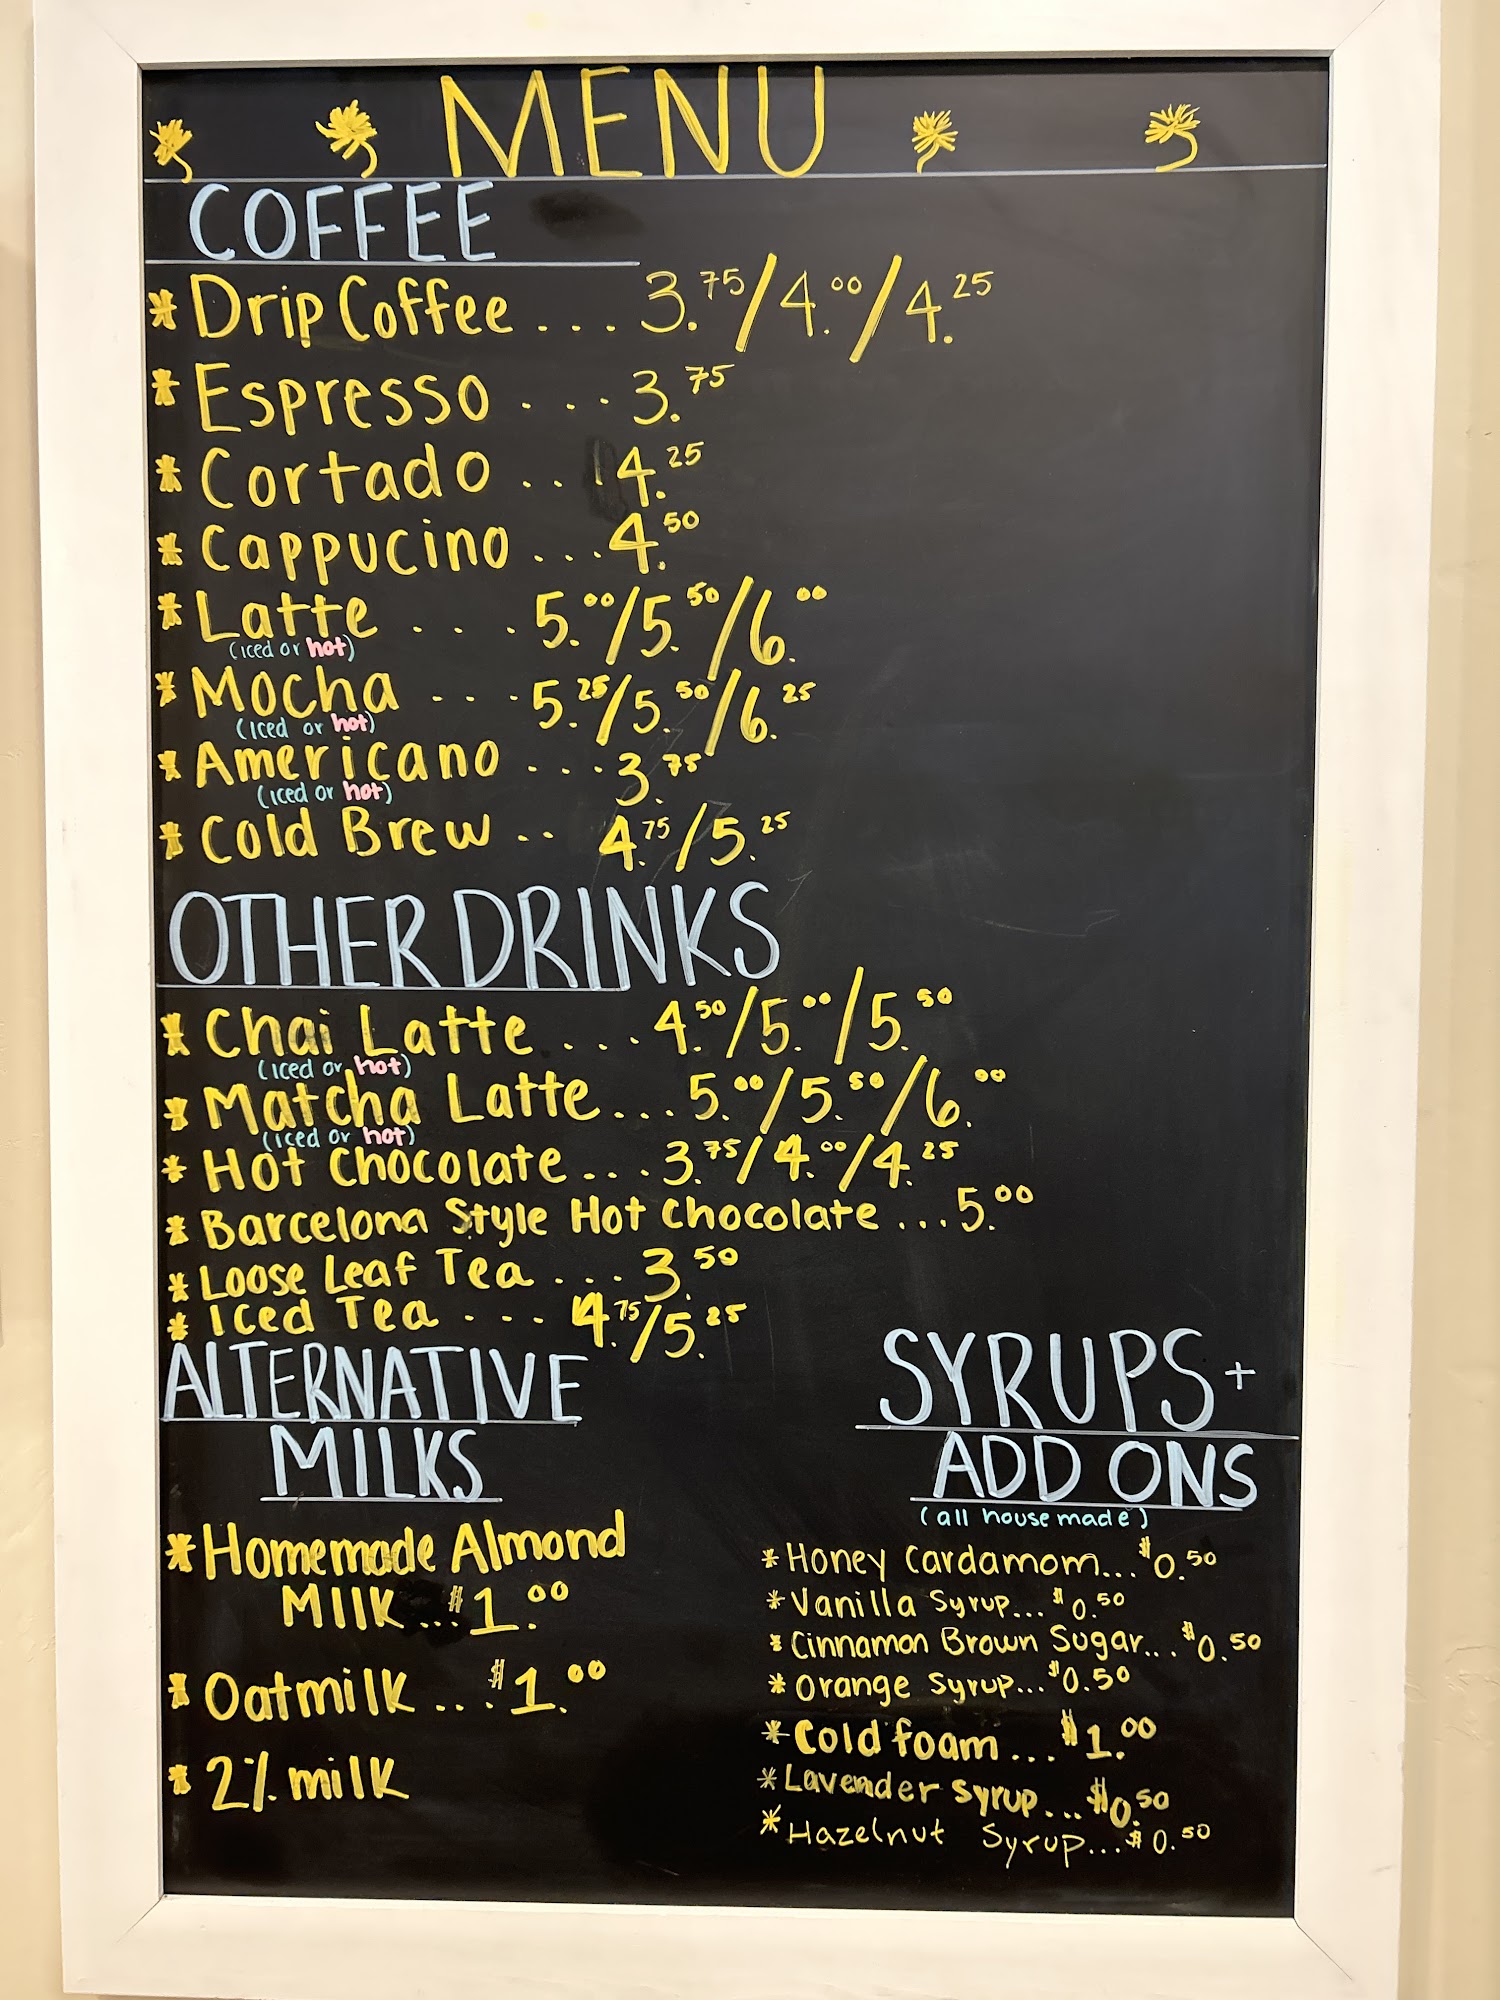 MENU
COFFEE
* Drip Coffee ... 3.75/4.00/4.25
* Espresso ... 3.75
* Cortado ... 4.25
* Cappucino ... 4.50
* Latte ... 5.00/5.50/6.00
(iced or hot)
* Mocha ... 5.25/5.50/6.25
(iced or hot)
* Americano ... 3.75
(iced or hot)
* Cold Brew .. 4.75/5.25
OTHER DRINKS
* Chai Latte ... 4.50/5.00/5.50
(iced or hot)
* Matcha Latte ... 5.00/5.50/6.00
(iced or hot)
* Hot Chocolate ... 3.75/4.00/4.25
* Barcelona Style Hot Chocolate ... 5.00
* Loose Leaf Tea ... 3.50
* Iced Tea ... 4.75/5.25
ALTERNATIVE
MILKS
* Homemade Almond
Milk ... $1.00
* Oatmilk ... $1.00
* 2% milk
SYRUPS +
ADD ONS
(all housemade)
* Honey Cardamom... $0.50
* Vanilla Syrup... $0.50
* Cinnamon Brown Sugar... $0.50
* Orange Syrup... $0.50
* Cold foam ... $1.00
* Lavender Syrup... $0.50
* Hazelnut Syrup... $0.50